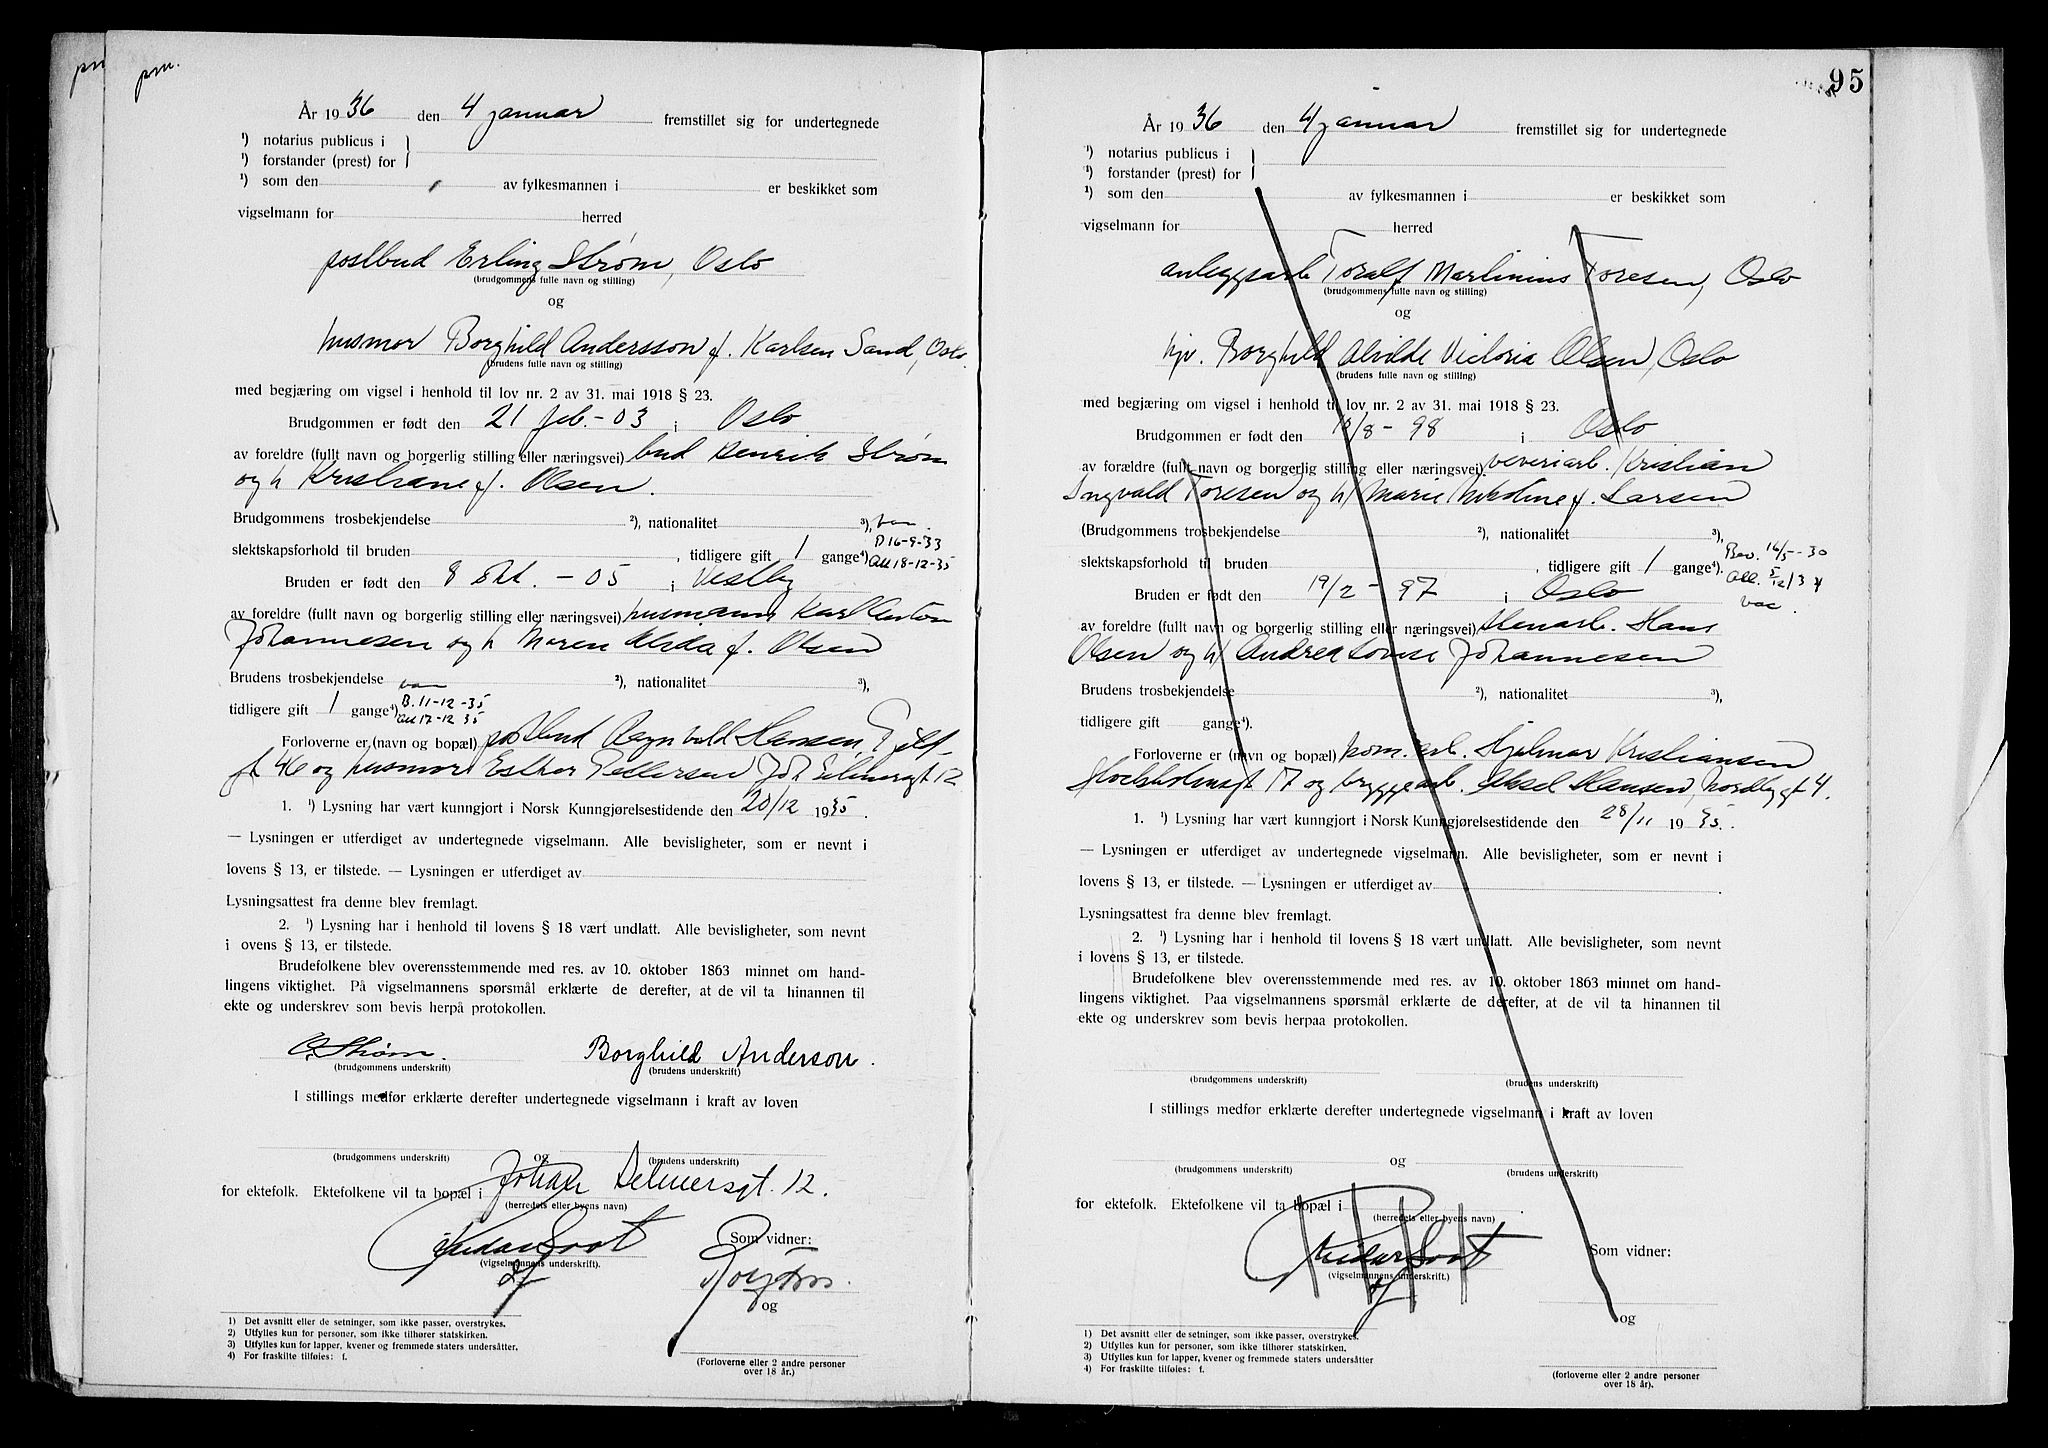 prm.
År 1936 den 4 januar fremstillet sig for undertegnede
1) notarius publicus i
1) forstander (prest) for
1) som den av fylkesmannen i er beskikket som
vigselmann for herred
postbud Erling Strøm, Oslo
(brudgommens fulle navn og stilling)
og
husmor Borghild Andersson f. Karlsen Sand, Oslo.
(brudens fulle navn og stilling)
med begjæring om vigsel i henhold til lov nr. 2 av 31. mai 1918 § 23.
Brudgommen er født den 21 feb. - 03 i Oslo
av foreldre (fullt navn og borgerlig stilling eller næringsvei) bud Henrik Strøm
og h Kristiane f. Olsen.
Brudgommens trosbekjendelse 2), nationalitet 3),
D 16-9-33
slektskapsforhold til bruden , tidligere gift 1 gange4) All 18-12-35
Bruden er født den 8 okt. - 05 i Vestby
av foreldre (fullt navn og borgerlig stilling eller næringsvei) husmann Karl Anton
Johannesen og h Maren f. Olsen
Brudens trosbekjendelse 2), nationalitet 3),
B. 11-12-35
tidligere gift 1 gange4) All 17-12 35
Forloverne er (navn og bopæl) postbud Hansen,
46 og husmor Esther Pettersen Joh Selmersgt 12
1. 1) Lysning har vært kunngjort i Norsk Kunngjørelsestidende den 20/12 1935.
— Lysningen er utferdiget av undertegnede vigselmann. Alle bevisligheter, som er nevnt i
lovens § 13, er tilstede. — Lysningen er utferdiget av
Lysningsattest fra denne blev fremlagt.
2. 1) Lysning har i henhold til lovens § 18 vært undlatt. Alle bevisligheter, som nevnt
i ovens § 13, er tilstede.
Brudefolkene blev overensstemmende med res. av 10. oktober 1863 minnet om hand-
lingens viktighet. På vigselmannens spørsmål erklærte de derefter, at de vil ta hinannen til
ekte og underskrev som bevis herpå protokollen.
E. Strøm. Borghild Anderson.
(brudgommens underskrift) (brudens underskrift)
I stillings medfør erklærte derefter undertegnede vigselmann i kraft av loven
og
(brudgommens underskrift) (brudens underskrift)
for ektefolk. Ektefolkene vil ta bopæl i Johan Selmersgt. 12.
(herredets eller byens navn)
Som vidner:
(vigselmannens underskrift).
og
1) Det avsnitt eller de setninger, som ikke passer, overstrykes.
2) Utfylles kun for personer, som ikke tilhører statskirken.
3) Utfylles kun for lapper, kvener og fremmede staters undersåtter.
4) For fraskilte tilføies: f.
(Forloverne eller 2 andre personer
over 18 år.)
95
År 1936 den 4 januar fremstillet sig for undertegnede
1) notarius publicus i
1) forstander (prest) for
1) som den av fylkesmannen i er beskikket som
vigselmann for herred
anleggsarb Toralf Martinius Toresen, Oslo
(brudgommens fulle navn og stilling)
og
hjv. Borghild Alvilde Victoria Olsen, Oslo
(brudens fulle navn og stilling)
med begjæring om vigsel i henhold til lov nr. 2 av 31. mai 1918 § 23.
Brudgommen er født den /8 - 98 i Oslo
av forældre (fullt navn og borgerlig stilling eller næringsvei) veveriarb. Kristian
Ingvald Toresen og h/ Marie Nikoline f. Larsen
(Brudgommens trosbekjendelse 2), nationalitet 3),
Bev. 16/5 - 30
slektskapsforhold til bruden , tidligere gift 1 gange4). All. 5/12/34
Bruden er født den 19/2 - 97 i Oslo
av foreldre (fullt navn og borgerlig stilling eller næringsvei) stenarb. Hans
Olsen og h/ Andrea Lovise Johannesen
Brudens trosbekjendelse 2), nationalitet 3),
tidligere gift gange4).
Forloverne er (navn og bopæl) kom. arb. Hjalmar Kristiansen
17 og bryggearb. Aksel Hansen, Nordbygt 4.
1. 1) Lysning har vært kunngjort i Norsk Kunngjørelsestidende den 28/11 1935.
— Lysningen er utferdiget av undertegnede vigselmann. Alle bevisligheter, som er nevnt i
lovens § 13, er tilstede. — Lysningen er utferdiget av
Lysningsattest fra denne blev fremlagt.
2. 1) Lysning har i henhold til lovens § 18 vært undlatt. Alle bevisligheter, som nevnt
i lovens § 13, er tilstede.
Brudefolkene blev overensstemmende med res. av 10. oktober 1863 minnet om hand-
lingens viktighet. Paa vigselmannens spørsmål erklærte de derefter, at de vil ta hinannen til
ekte og underskrev som bevis herpaa protokollen.
(brudgommens underskrift) (brudens underskrift)
I stillings medfør erklærte derefter undertegnede vigselmann i kraft av loven
og
(brudgommens underskrift) (brudens underskrift)
for ektefolk. Ektefolkene vil ta bopæl i
(herredets eller byens navn)
Som vidner:
(vigselmannens underskrift.)
og
1) Det avsnitt eller de setninger, som ikke passer, overstrykes.
2) Utfylles kun for personer, som ikke tilhører statskirken.
3) Utfylles kun for lapper, kvener og fremmede staters undersåtter
4) For fraskilte tilføies: f.
(forloverne eller 2 andre personer
over 18 år).